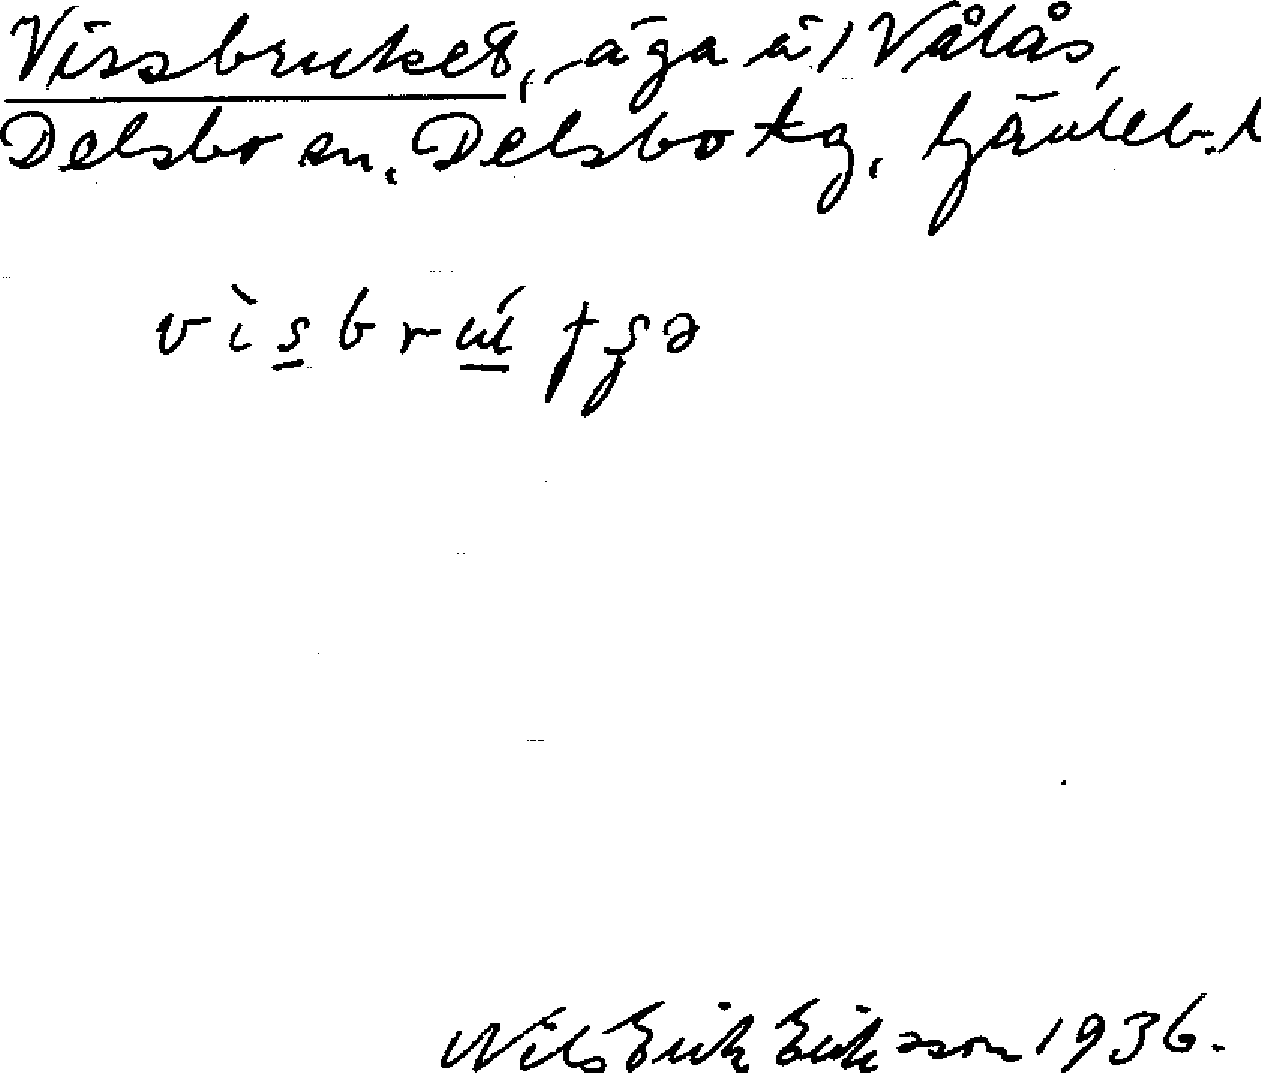 Vissbruket, äga å 1 Vålås,
Delsbo sn, Delsbo tg, Gävleb. l
Nils Erik Eriksson 1936.